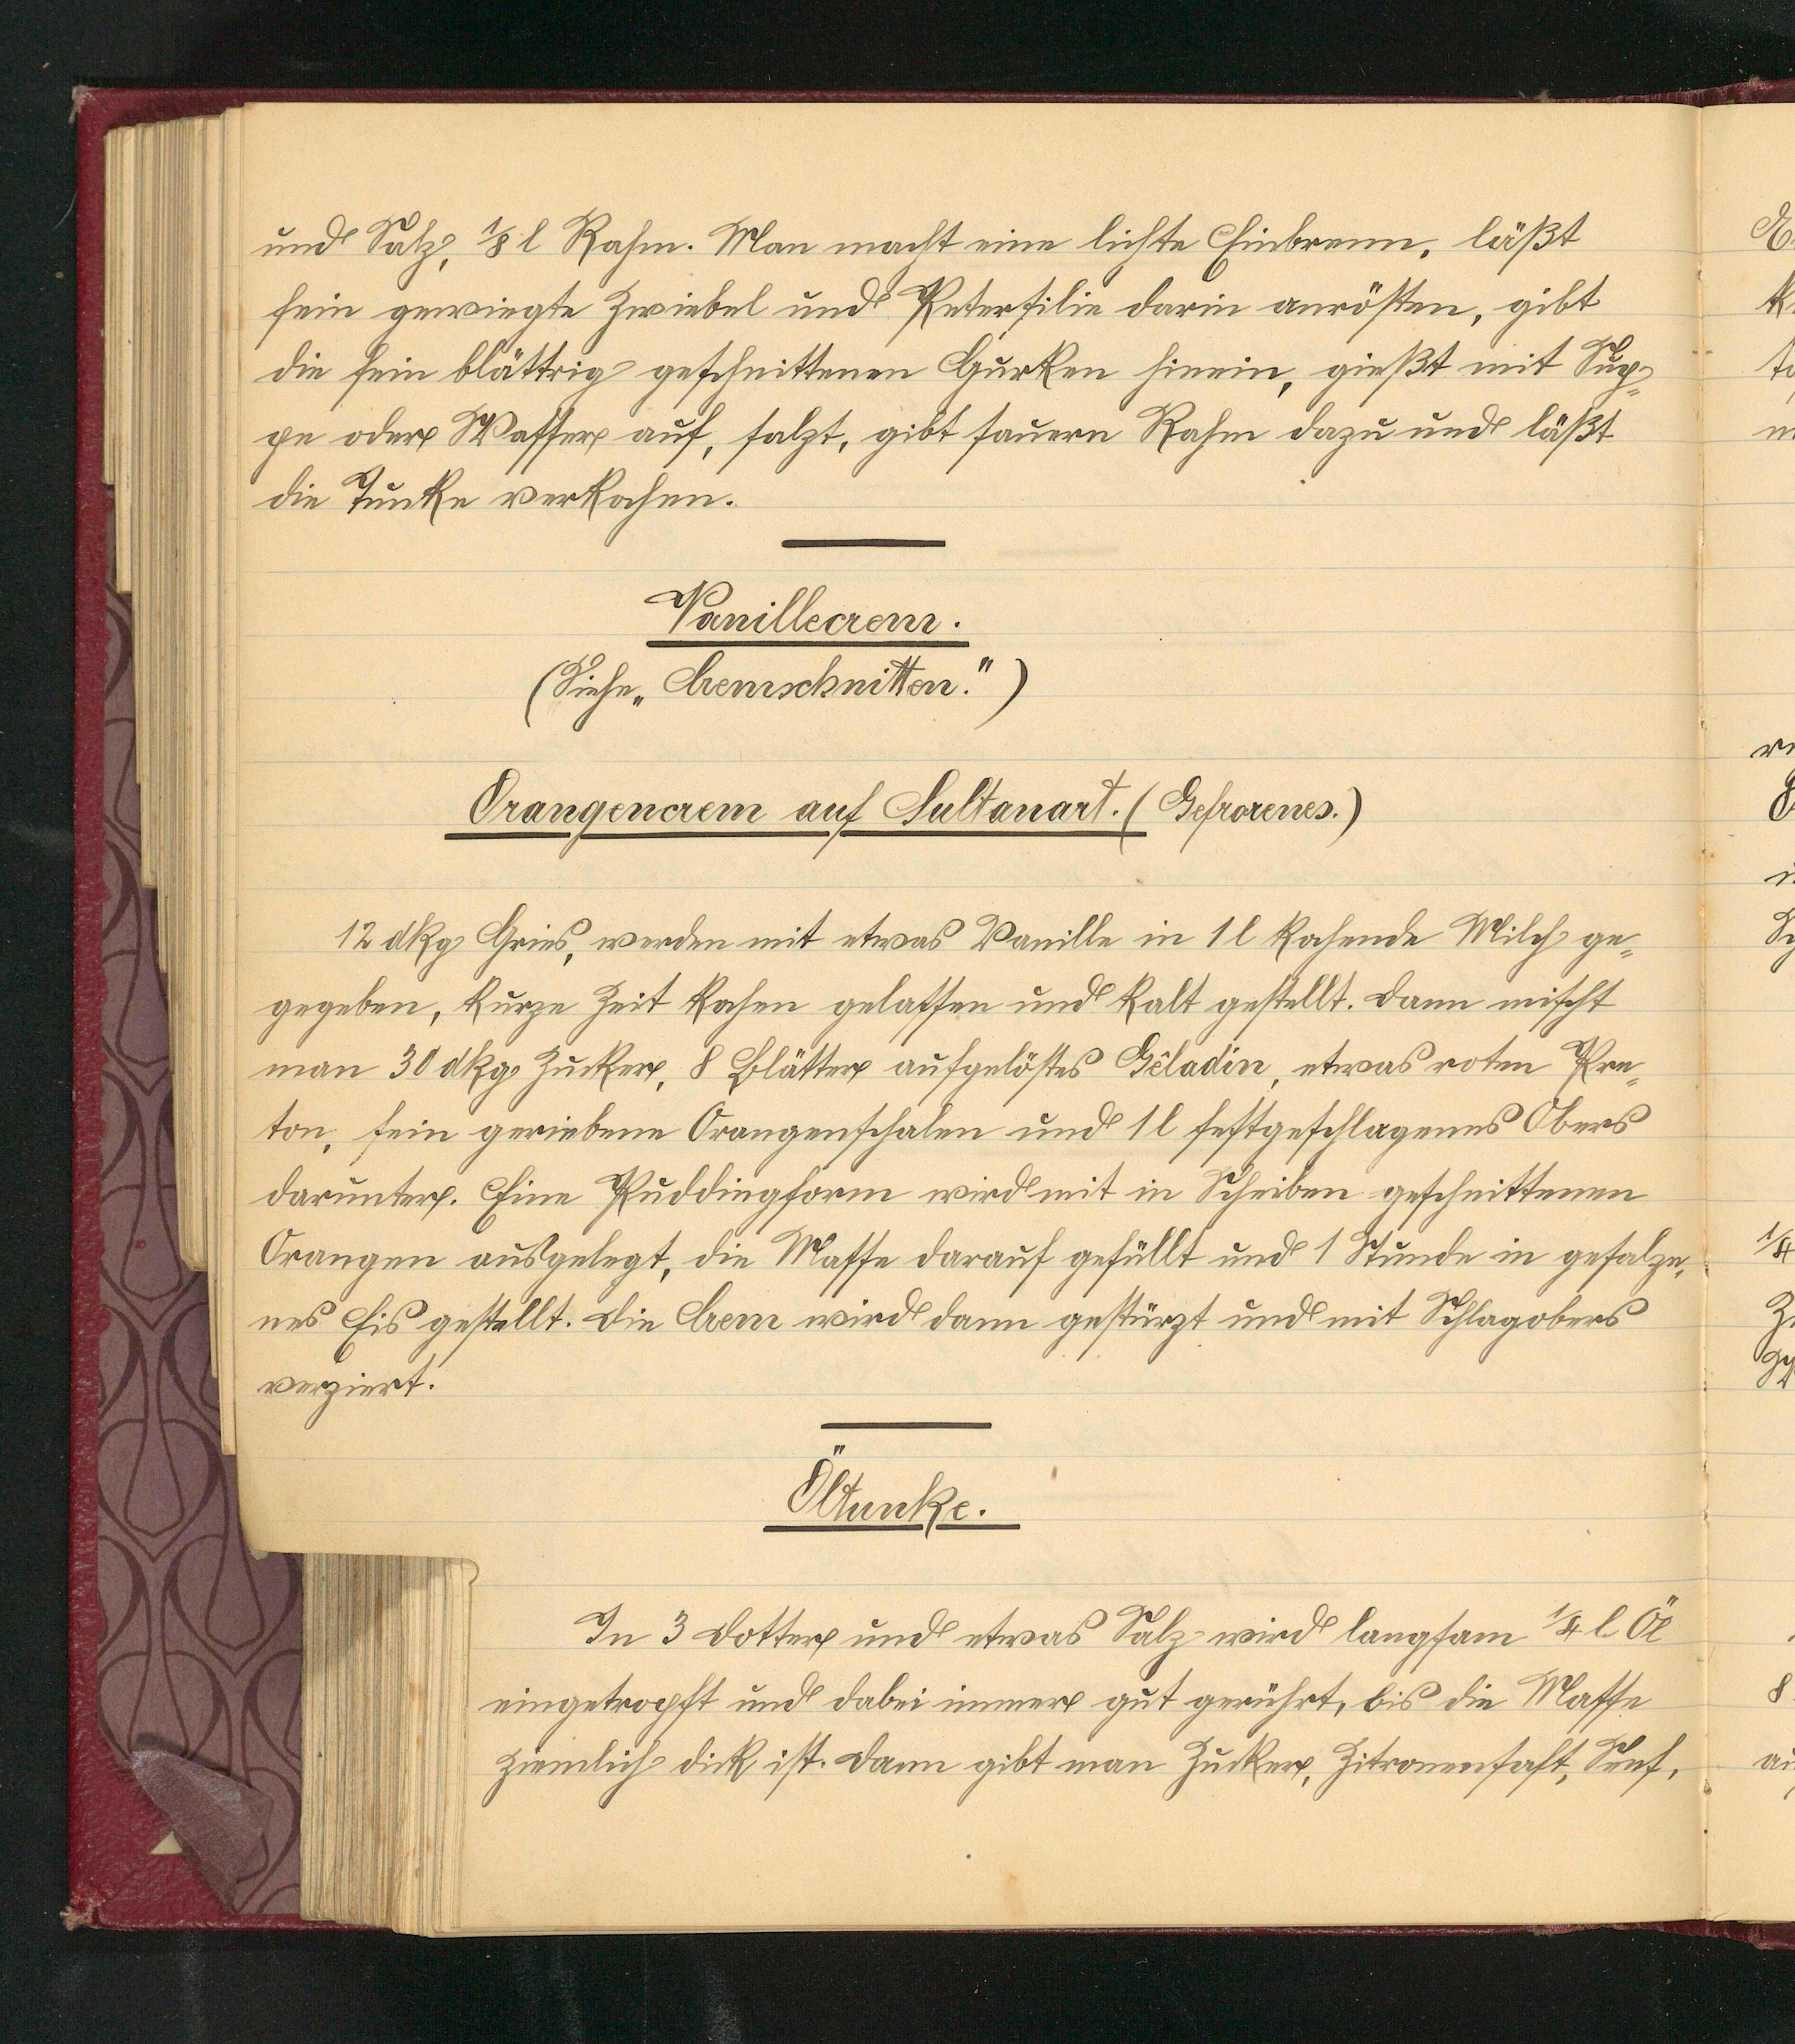 und Salz, 1/8 l Rahm. Man macht eine lichte Einbrenn, läßt
fein gewiegte Zwiebel und Petersilie darin anrösten, gibt
die fein blättrig geschnittenen Gurken hinein, gießt mit Sup=
pe oder Wasser auf, salzt, gibt sauern Rahm dazu und läßt
die Tunke verkochen.
Vanillecrem.
(Siehe „Cremschnitten.")
Orangencrem auf Sultanart. (Gefrorenes.)
12 dkg Gries, werden mit etwas Vanille in 1 l kochende Milch ge=
gegeben, kurze Zeit kochen gelassen und kalt gestellt. Dann mischt
man 30 dkg Zucker, 8 Blätter aufgelöstes Gêladin, etwas roten Pre=
ton, fein geriebene Orangenschalen und 1 l festgeschlagenes Obers
darunter. Eine Puddingform wird mit in Scheiben geschnittenen
Orangen ausgelegt, die Masse darauf gefüllt und 1 Stunde in gesalze=
nes Eis gestellt. Die Crem wird dann gestürzt und mit Schlagobers
verziert.
Öltunke.
In 3 Dotter und etwas Salz wird langsam 1/4 l Öl
eingetropft und dabei immer gut gerührt, bis die Masse
ziemlich dick ist. Dann gibt man Zucker, Zitronensaft, Senf,